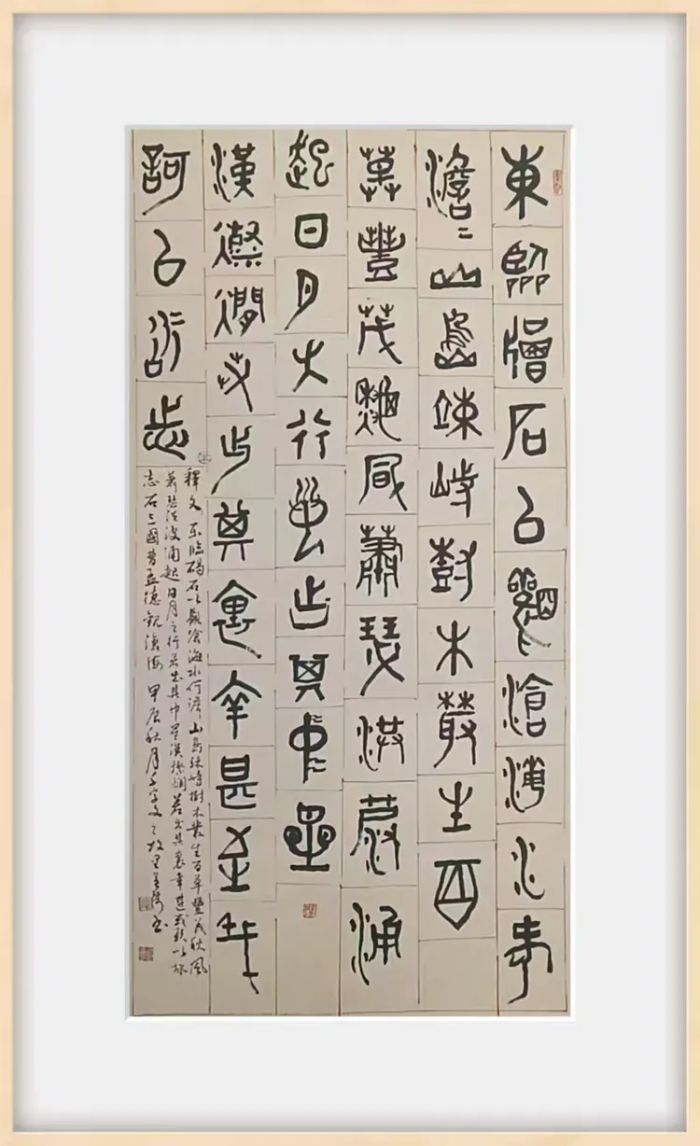 東臨碣石以觀滄海水何
澹〻山島竦峙樹木叢生百
草豐茂秋風蕭瑟洪波涌
起日月之行若出其中星
漢燦爛若出其裏幸甚至哉
歌以詠志
釋文 东临碣石以觀滄海水何澹山島竦峙樹木叢生百草豐茂秋風
蕭瑟洪波涌起日月之行若出其中星漢燦爛若出其裏幸甚至哉歌以詠
志 右三國曹孟德觀滄海 甲辰秋月千字文之故里 书